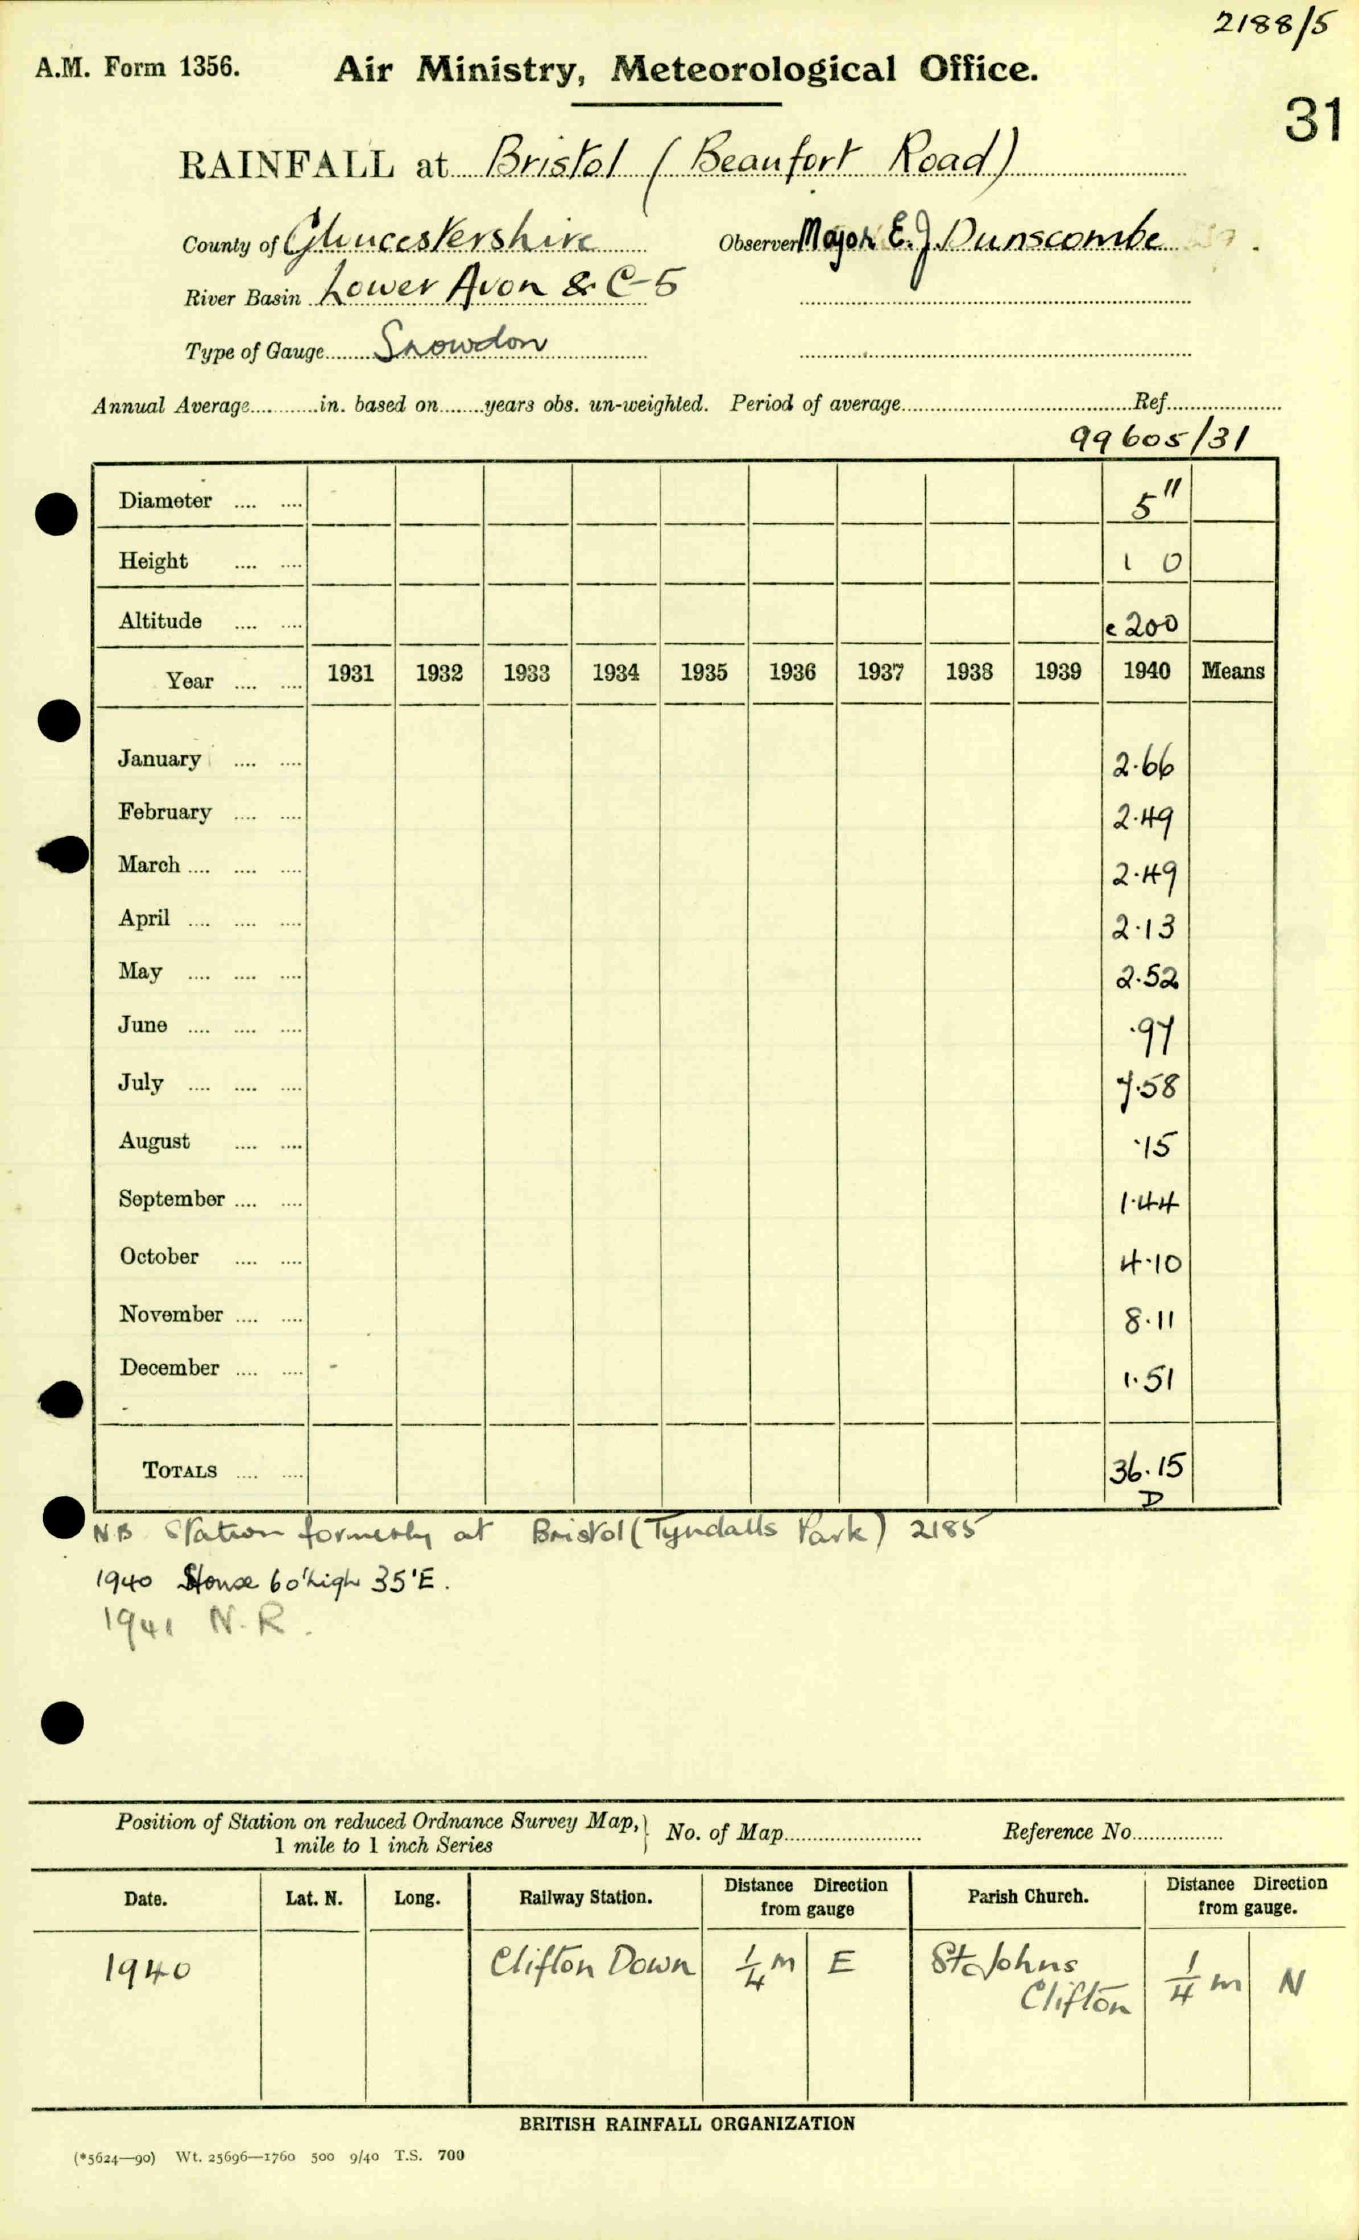 2188/5
A.M. Form 1356. Air Ministry, Meteorological Office.
31
RAINFALL at Bristol (Beaufort Road)
County of Gloucestershire Observer Major E.J. Dunscombe
River Basin Lower Avon & C-5
Type of Gauge Snowdon
Annual Average in. based on years obs. un-weighted. Period of average Ref.
99605/31
Diameter 5"
Height 1 0
Altitude c 200
Year 1931 1932 1933 1934 1935 1936 1937 1938 1939 1940 Means
January 2.66
February 2.49
March 2.49
April 2.13
May 2.52
June .97
July 7.58
August .15
September 1.44
October 4.10
November 8.11
December 1.51
TOTALS 36.15
D
NB Station formerly at Bristol (Tyndalls Park) 2185
1940 House 60' high 35'E.
1941 N.R.
Position of Station on reduced Ordnance Survey Map, 1 mile to 1 inch Series } No. of Map Reference No.
Date. Lat. N. Long. Railway Station. Distance Direction from gauge Parish Church. Distance Direction from gauge.
1940 Clifton Down 1/4 m E St Johns Clifton 1/4 m N
BRITISH RAINFALL ORGANIZATION
(*5624—90) Wt. 25696—1760 500 9/40 T.S. 700